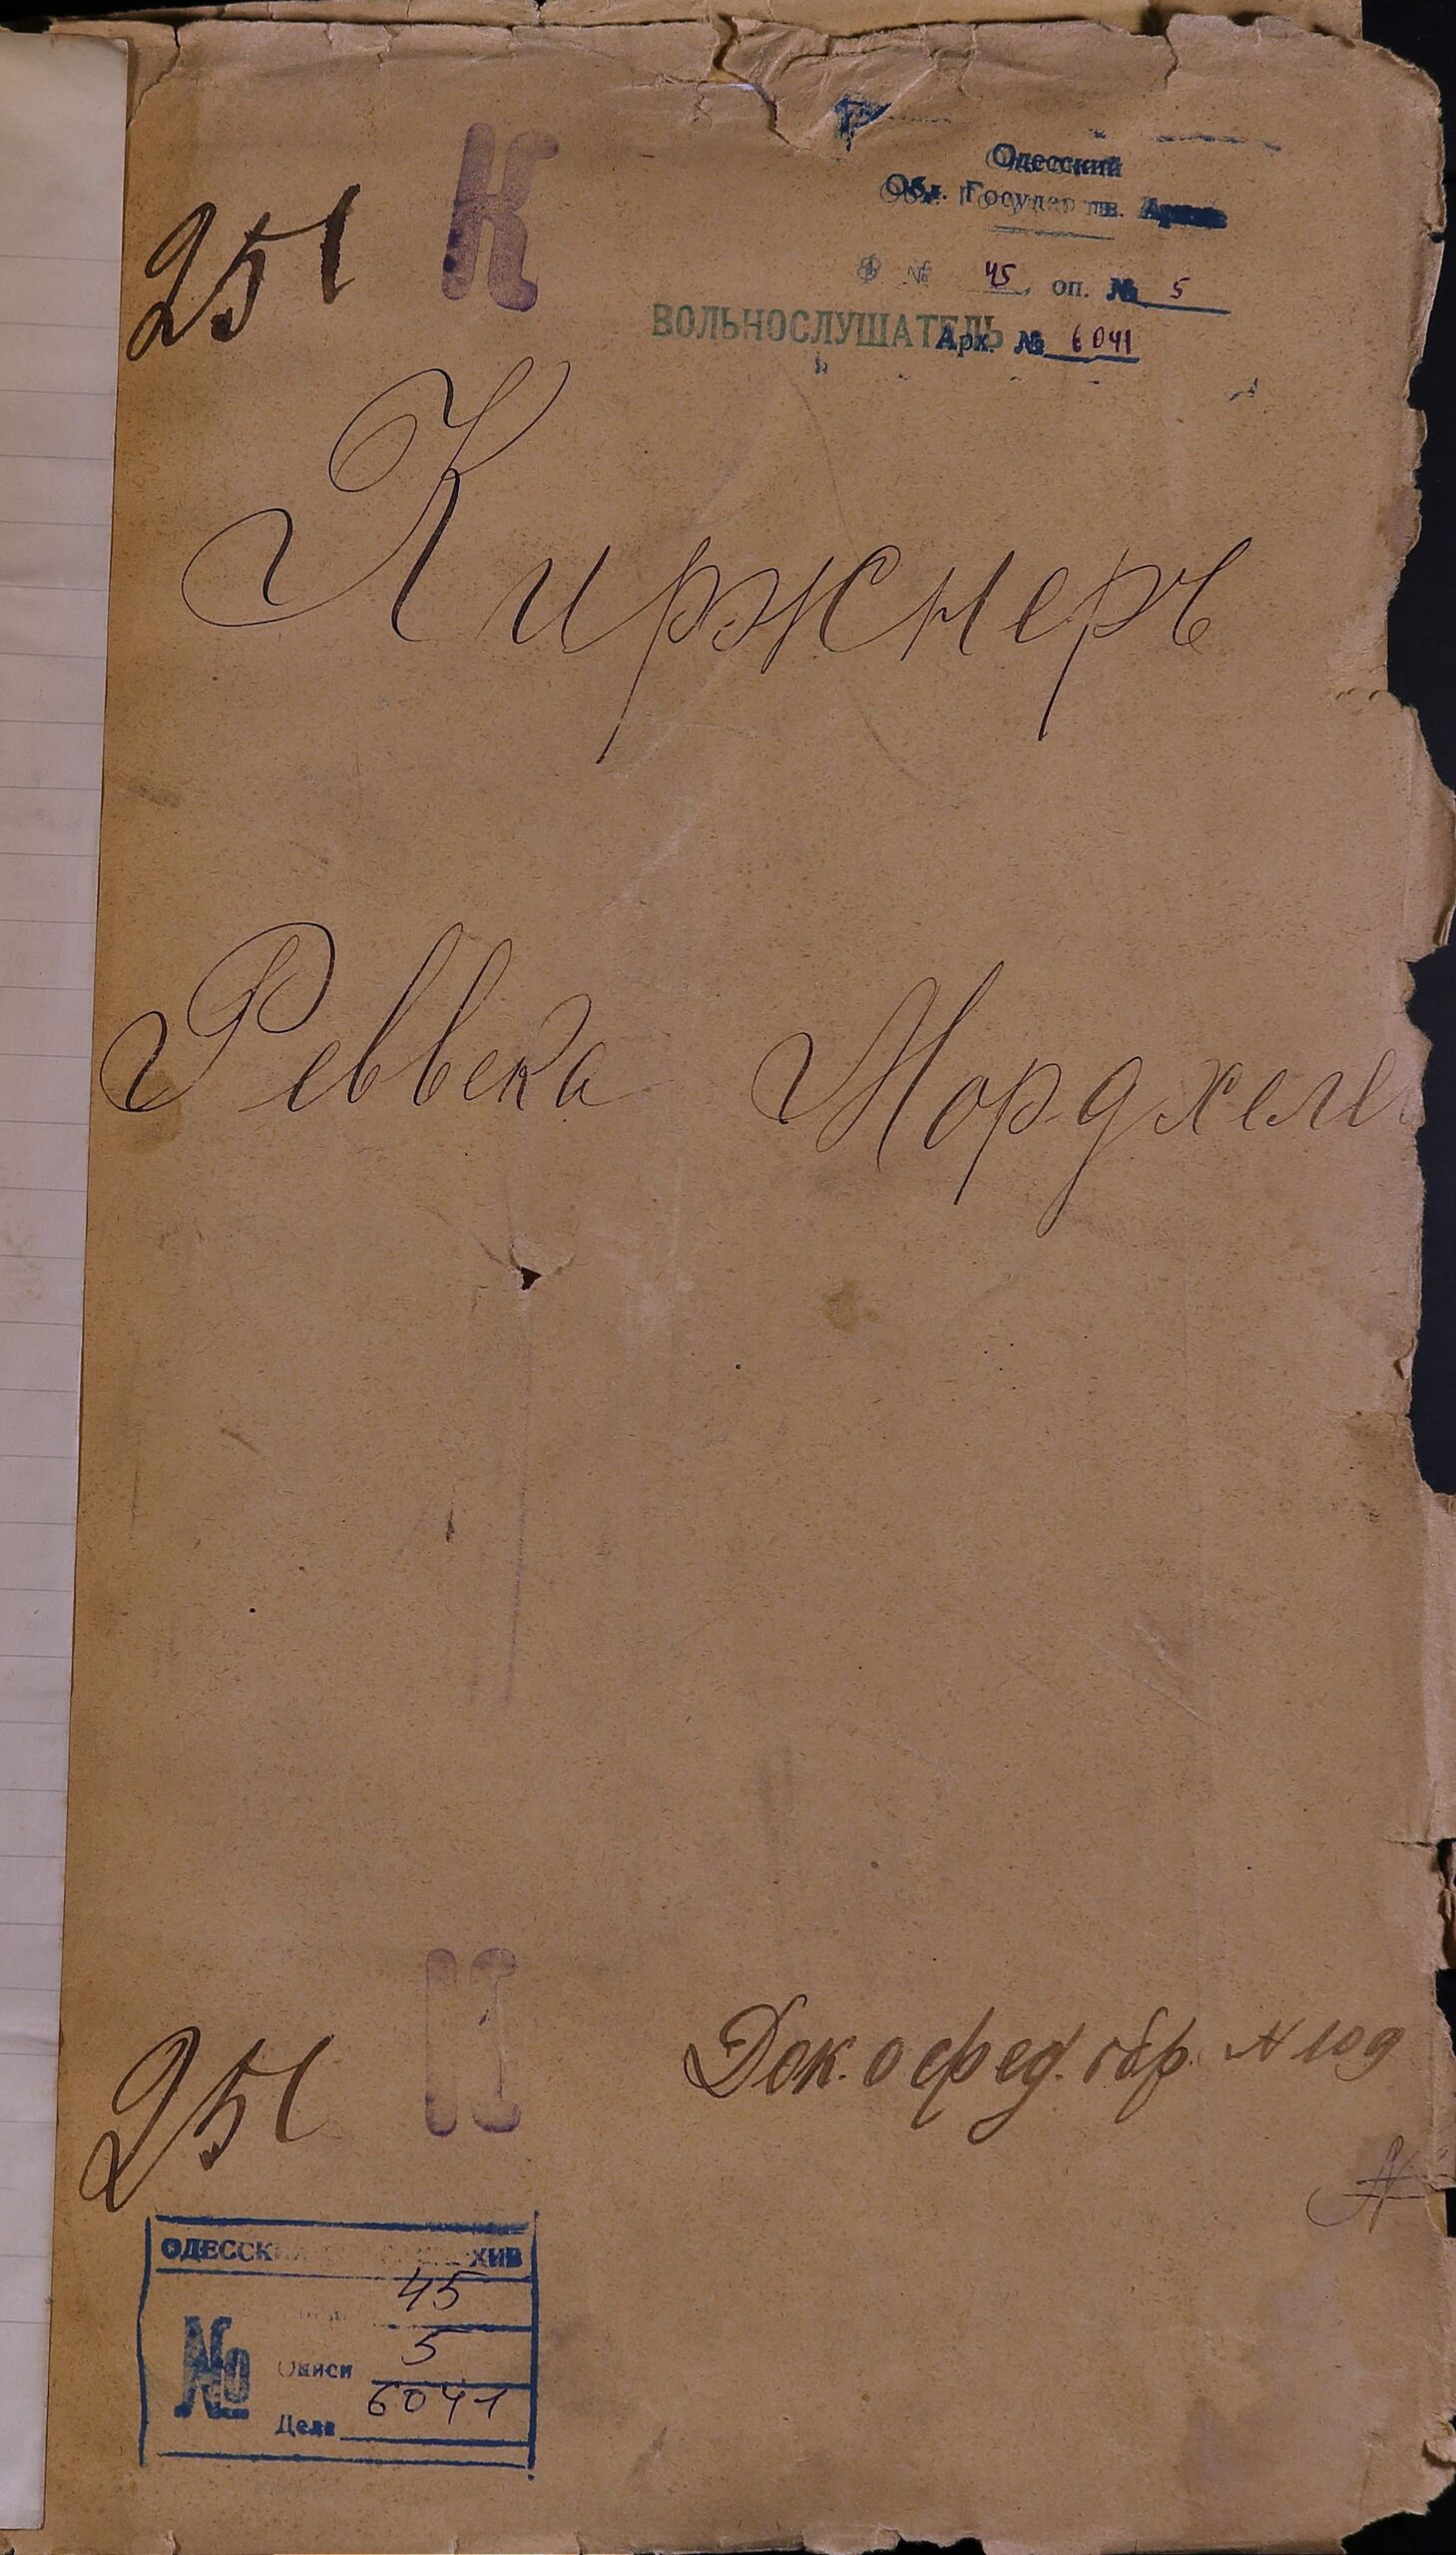 251 К
Одесский
Обл. Государств. Архив
Ф № 45 оп. № 5
ВОЛЬНОСЛУШАТЕЛЬ
Арх. № 6041
Киржнеръ
Реввека Мордхеле
251
Док. о сред. обр. N 109
ОДЕССКИ ХИВ
45
№ Описи 5
Дела 6041